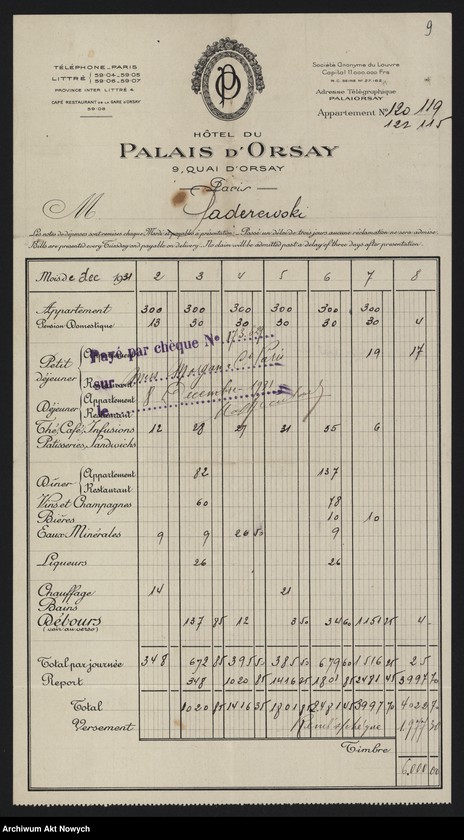 9
TÉLÉPHONE-PARIS
LITTRÉ { 59-04_59-05
59-06_59-07
PROVINCE INTER LITTRÉ 4
CAFÉ RESTAURANT DE LA GARE D'ORSAY
99-08
OP
Société Anonyme du Louvre
Capital 11.000.000 Frs
Adresse Télégraphique
PALAIORSAY
Appartement N° 120 119
122 115
HÔTEL DU
PALAIS D'ORSAY
9, QUAI D'ORSAY
Paris
M Paderewski
Les notes de dépenses sont remises chaque Mardi et payables à présentation. Passé un délai de trois jours aucune réclamation ne sera admise.
Bills are presented every Tuesday and payable on delivery. No claim will be admitted past a delay of three days after presentation.
Mois de Dec 1931 2 3 4 5 6 7 8
Appartement 300 300 300 300 300 300
Pension Domestique 13 30 30 30 30 30 4
Petit déjeuner { Appartement 19 17
Restaurant
Payé par chèque N°
sur Morgan & Cie Paris
le 8 Décembre 1931
Déjeuner { Appartement
Restaurant
Thé, Café, Infusions 12 28 27 31 35 6
Patisseries, Sandwichs
Dîner { Appartement 82 137
Restaurant
Vins et Champagnes 60 78
Bières 10 10
Eaux Minérales 9 9 26 50 9
Liqueurs 26 26
Chauffage 14 21
Bains
Débours 137 85 12 3 50 34 60 1151 25 4
(voir au verso)
Total par journée 348 672 85 395 50 385 50 679 60 1516 25 25
Report 348 1020 85 1416 35 1801 85 2481 45 3997 70
Total 1020 85 1416 35 1801 85 2481 45 3997 70 4022 70
Versement 1.977 30
Timbre
6.000 00
Archiwum Akt Nowych